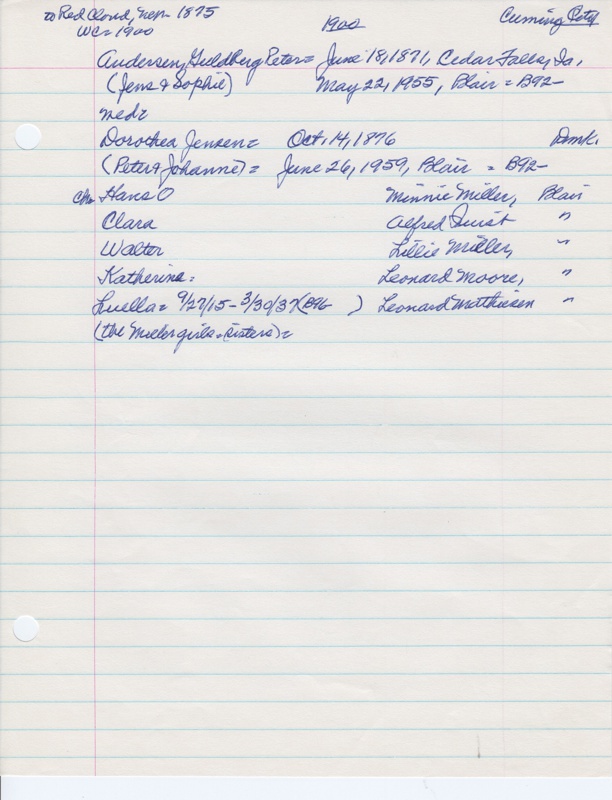 to Red Cloud, Nebr 1875 1900 Cuming City
WC = 1900
Andersen, Guldberg Peter = June 18, 1871, Cedar Falls, Ia,
(Jens & Sophie) May 22, 1955, Blair = B92-
med=
Dorothea Jensen = Oct. 14, 1876 Dmk.
(Peter & Johanne) = June 26, 1959, Blair = B92-
Chn Hans O Minnie Miller, Blair
Clara Alfred Quist "
Walter Lillie Miller, "
Katherine = Leonard Moore, "
Luella = 9/27/15 - 3/30/37 (B96- ) Leonard Mathiesen "
(the Miller girls = sisters) =